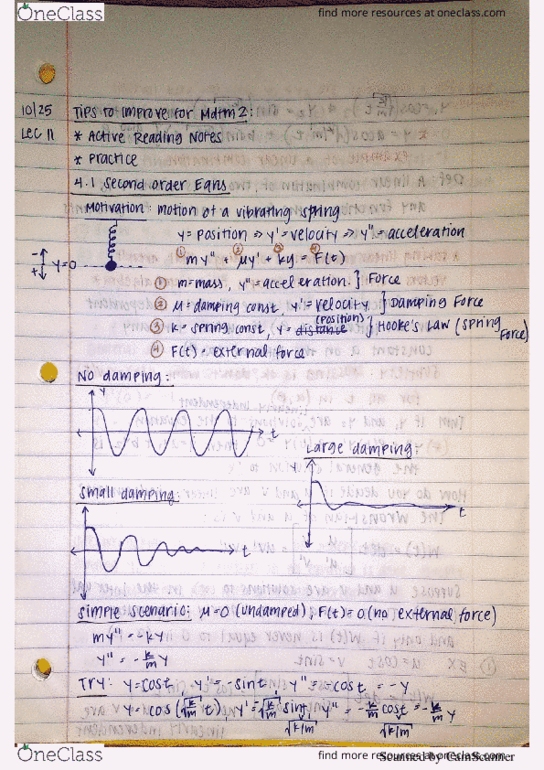 OneClass
find more resources at oneclass.com
10/25
Lec 11
Tips to improve for Mdtm 2:
* Active Reading Notes
* Practice
4.1 Second order Eqns
Motivation: motion of a vibrating spring
y = position => y' = velocity => y'' = acceleration
① ② ③ ④
my'' + μy' + ky = F(t)
- + y=0
① m=mass, y''=acceleration } Force
② μ=damping const, y'=velocity } Damping Force
(position)
③ k=spring const, y=distance } Hooke's Law (spring force)
④ F(t)=external force
No damping:
y
t
Large damping:
t
small damping
t
simple scenario: μ=0 (undamped), F(t)=0 (no external force)
my'' = -ky
y'' = -k/m y
TRY: y=cost, y'=-sint, y''=-cost = -y
y=cos(√k/m t) y'=√k/m sint, y''=-k/m cost=-k/m y
√k/m √k/m
OneClass
find more resources at oneclass.com
Scanned by CamScanner